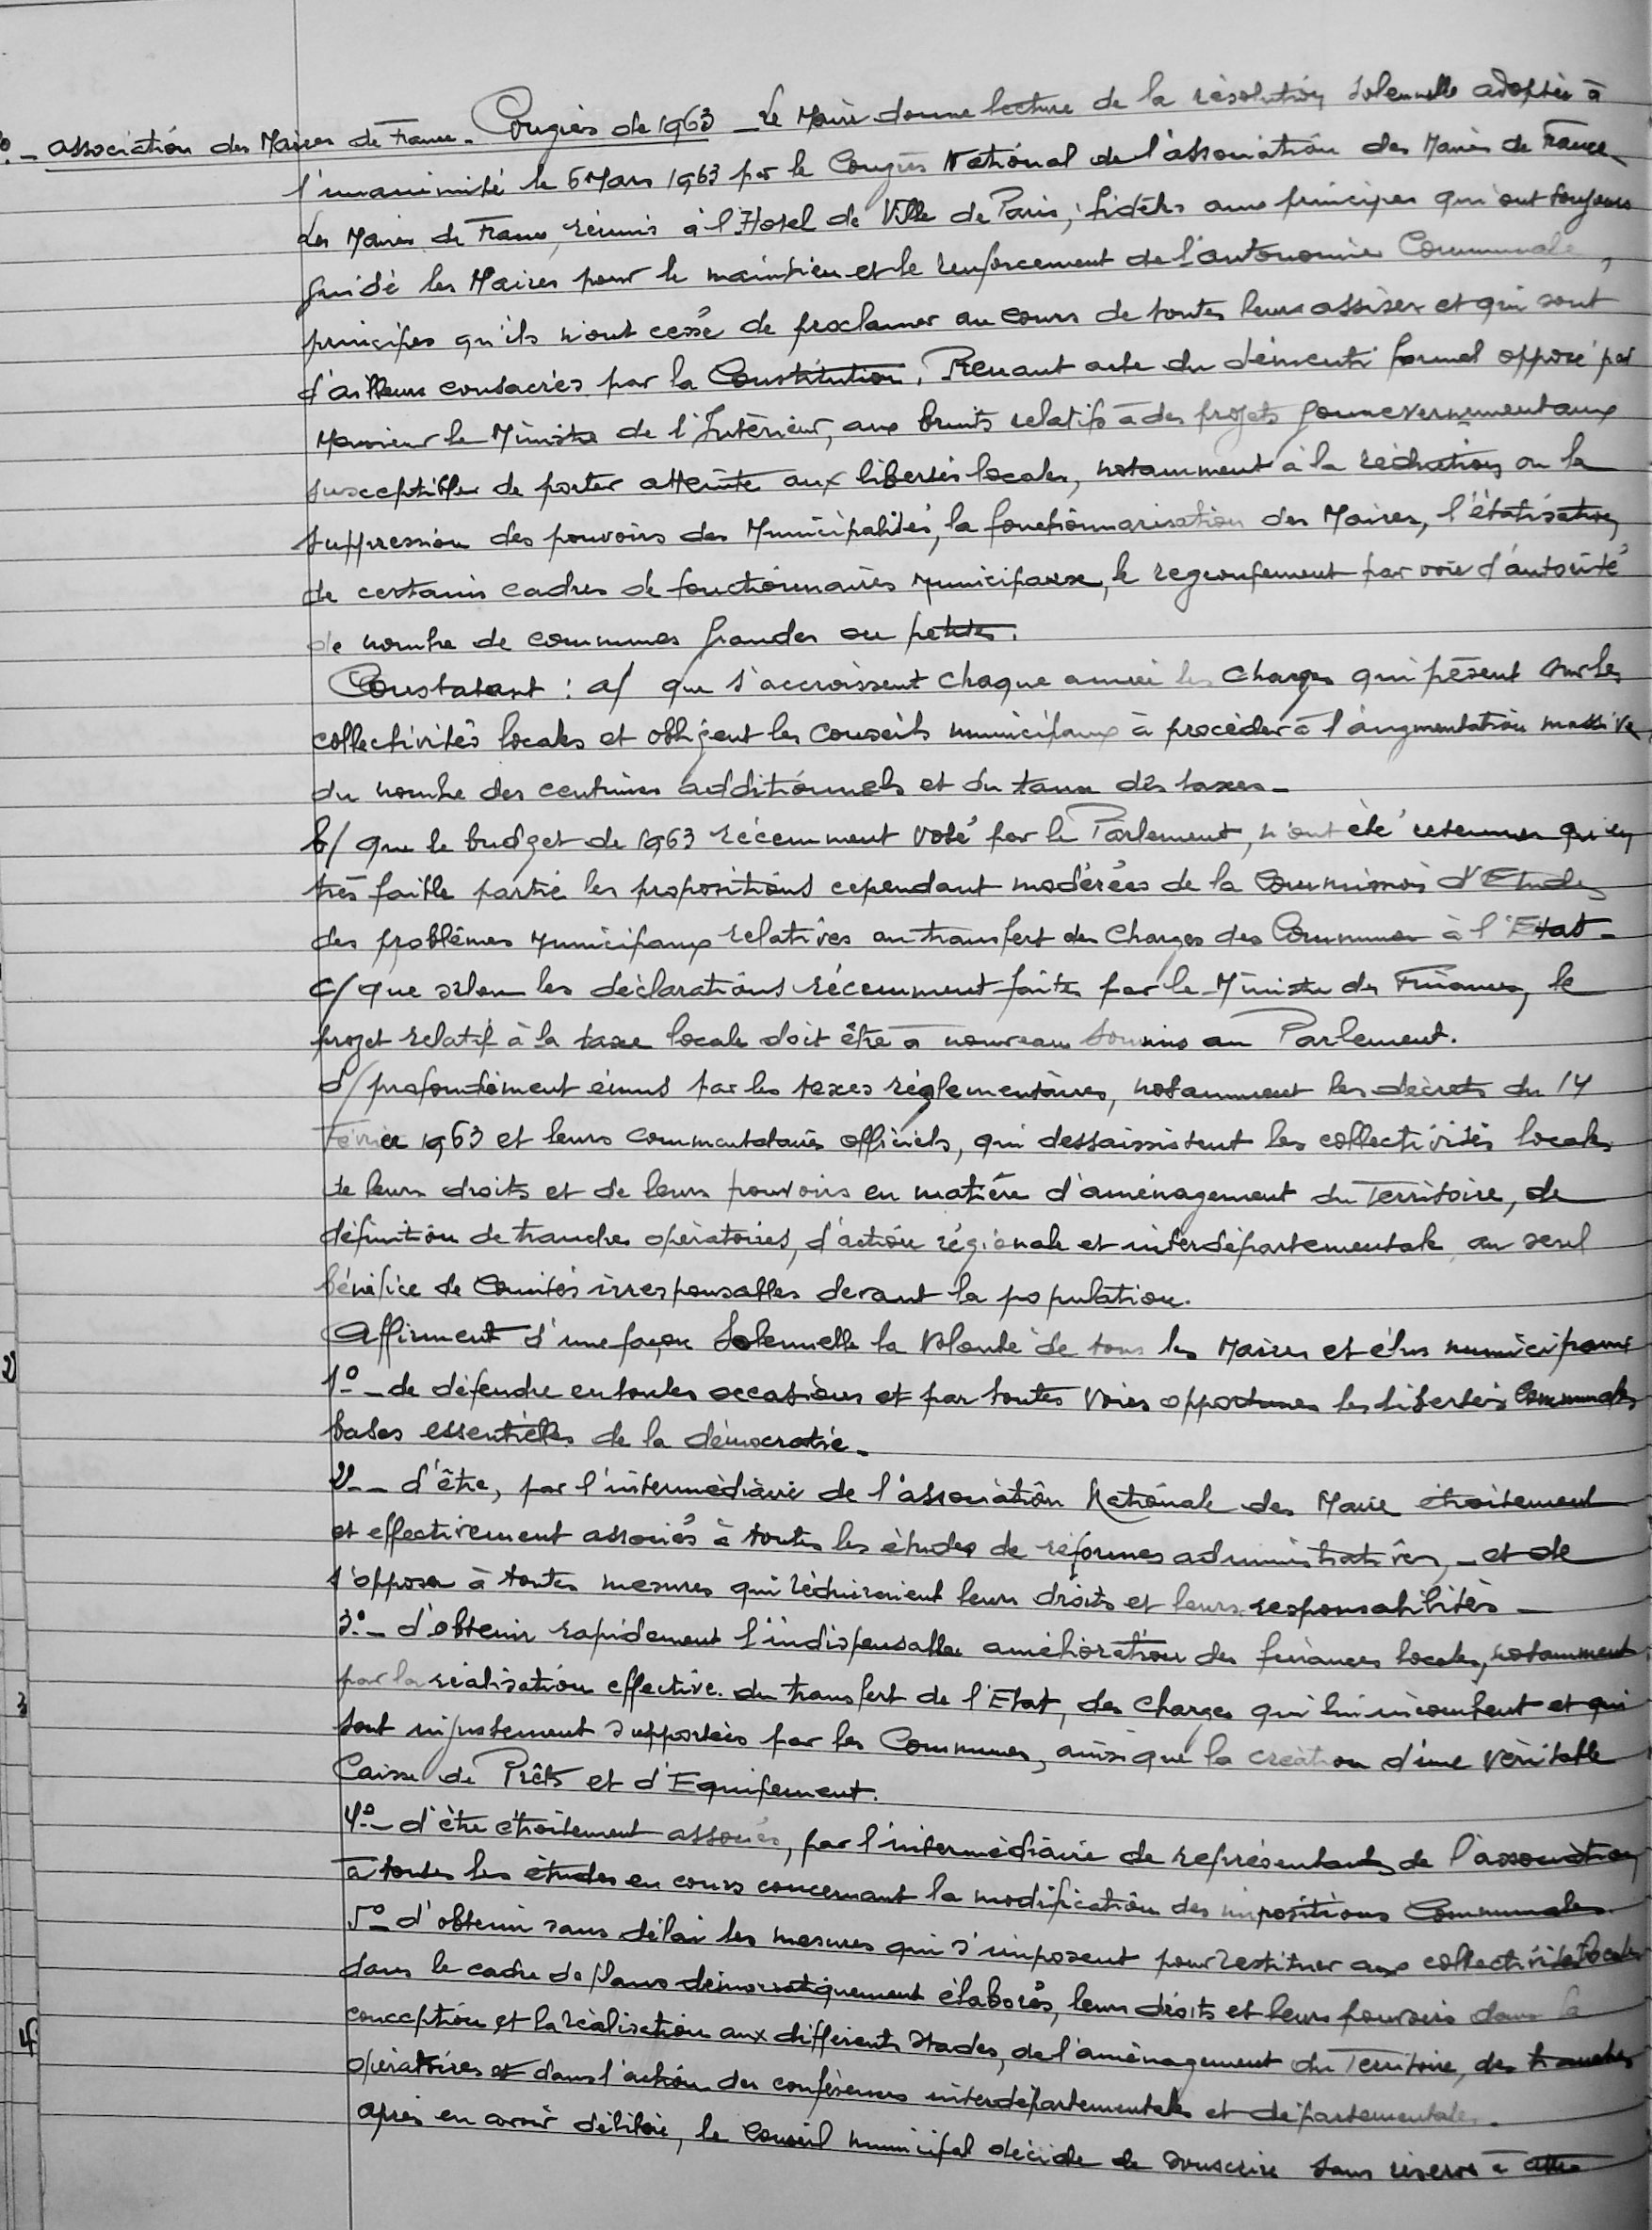 º. _ association des Maires de France _ Congrès de 1963 _ Le Maire donne lecture de la résolution solennelle adoptée à
l'unanimité le 6 Mars 1963 par le Congrès National de l'association des Maires de France _
Les Maires de France, réunis à l'Hotel de Ville de Paris, fidèles aux principes qui ont toujours
guidé les Maires pour le maintien et le renforcement de l'autonomie Communale,
principes qu'ils n'ont cessé de proclamer au cours de toutes leurs assises et qui sont
d'ailleurs consacrés par la Constitution. Prenant acte du démenti formel opposé par
Monsieur le Ministre de l'Intérieur, aux bruits relatifs à des projets gouvevernementaux
susceptibles de porter atteinte aux libertés locales, notamment à la réduction ou la
suppression des pouvoirs des Municipalités, la fonctionnarisation des Maires, l'étatisation
de certains cadres de fonctionnaires Municipaux, le regroupement par voie d'autorité
de nombre de communes grandes ou petites.
Constatant : a/ que s'accroissent chaque année les charges qui pèsent sur les
collectivités locales et obligent les conseils municipaux à procéder à l'augmentation massive
du nombre des centimes additionnels et du taux des taxes _
b/ que le budget de 1963 récemment voté par le Parlement, n'ont été retenues qu'en
très faible partie les propositions cependant modérées de la Commission d'Etudes
des problèmes Municipaux relatives au transfert des charges des Communes à l'Etat _
c/ que selon les déclarations récemment faites par le Ministre des Finances, le
projet relatif à la taxe locale doit être à nouveau soumis au Parlement.
d/ profondément émus par les texes réglementaires, notamment les décrets du 14
Février 1963 et leurs commentataires officiels, qui dessaisissent les collectivités locales
de leurs droits et de leurs pouvoirs en matière d'aménagement du Territoire, de
définition de tranches opératoires, d'action régionale et interdépartementale au seul
bénéfice de Comités irresponsables devant la population.
Affirment d'une façon Solennelle la Volonté de tous les Maires et élus municipaux
1º _ de défendre en toutes occasions et par toutes voies opportunes les libertés Communales
bases essentielles de la démocratie _
2) _ d'être, par l'intermédiaire de l'association Nationale des Maire étroitement
et effectivement associés à toutes les études de réformes administratives, _ et de
s'opposer à toutes mesures qui réduiraient leurs droits et leurs responsabilités _
3º _ d'obtenir rapidement l'indispensable amélioration des finances locales, notamment
par la réalisation effective du transfert de l'Etat, des charges qui lui incombent et qui
sont injustement supportées par les Communes, ainsi que la création d'une véritable
Caisse de Prêts et d'Equipement.
4º _ d'être étroitement associés, par l'intermédiaire de représentants de l'association
à toutes les études en cours concernant la modification des impositions Communales.
5º _ d'obtenir sans délai les mesures qui s'imposent pour restituer aux collectivités locales
dans le cadre de plans démocratiquement élaborés, leurs droits et leurs pouvoirs dans la
conception et la réalisation aux différents stades, de l'aménagement du Territoire, des tranches
opératoires et dans l'action des conférences interdépartementales et départementales.
après en avoir délibéré, le Conseil Municipal décide de souscrire sans réserve à cette
2)
3
4